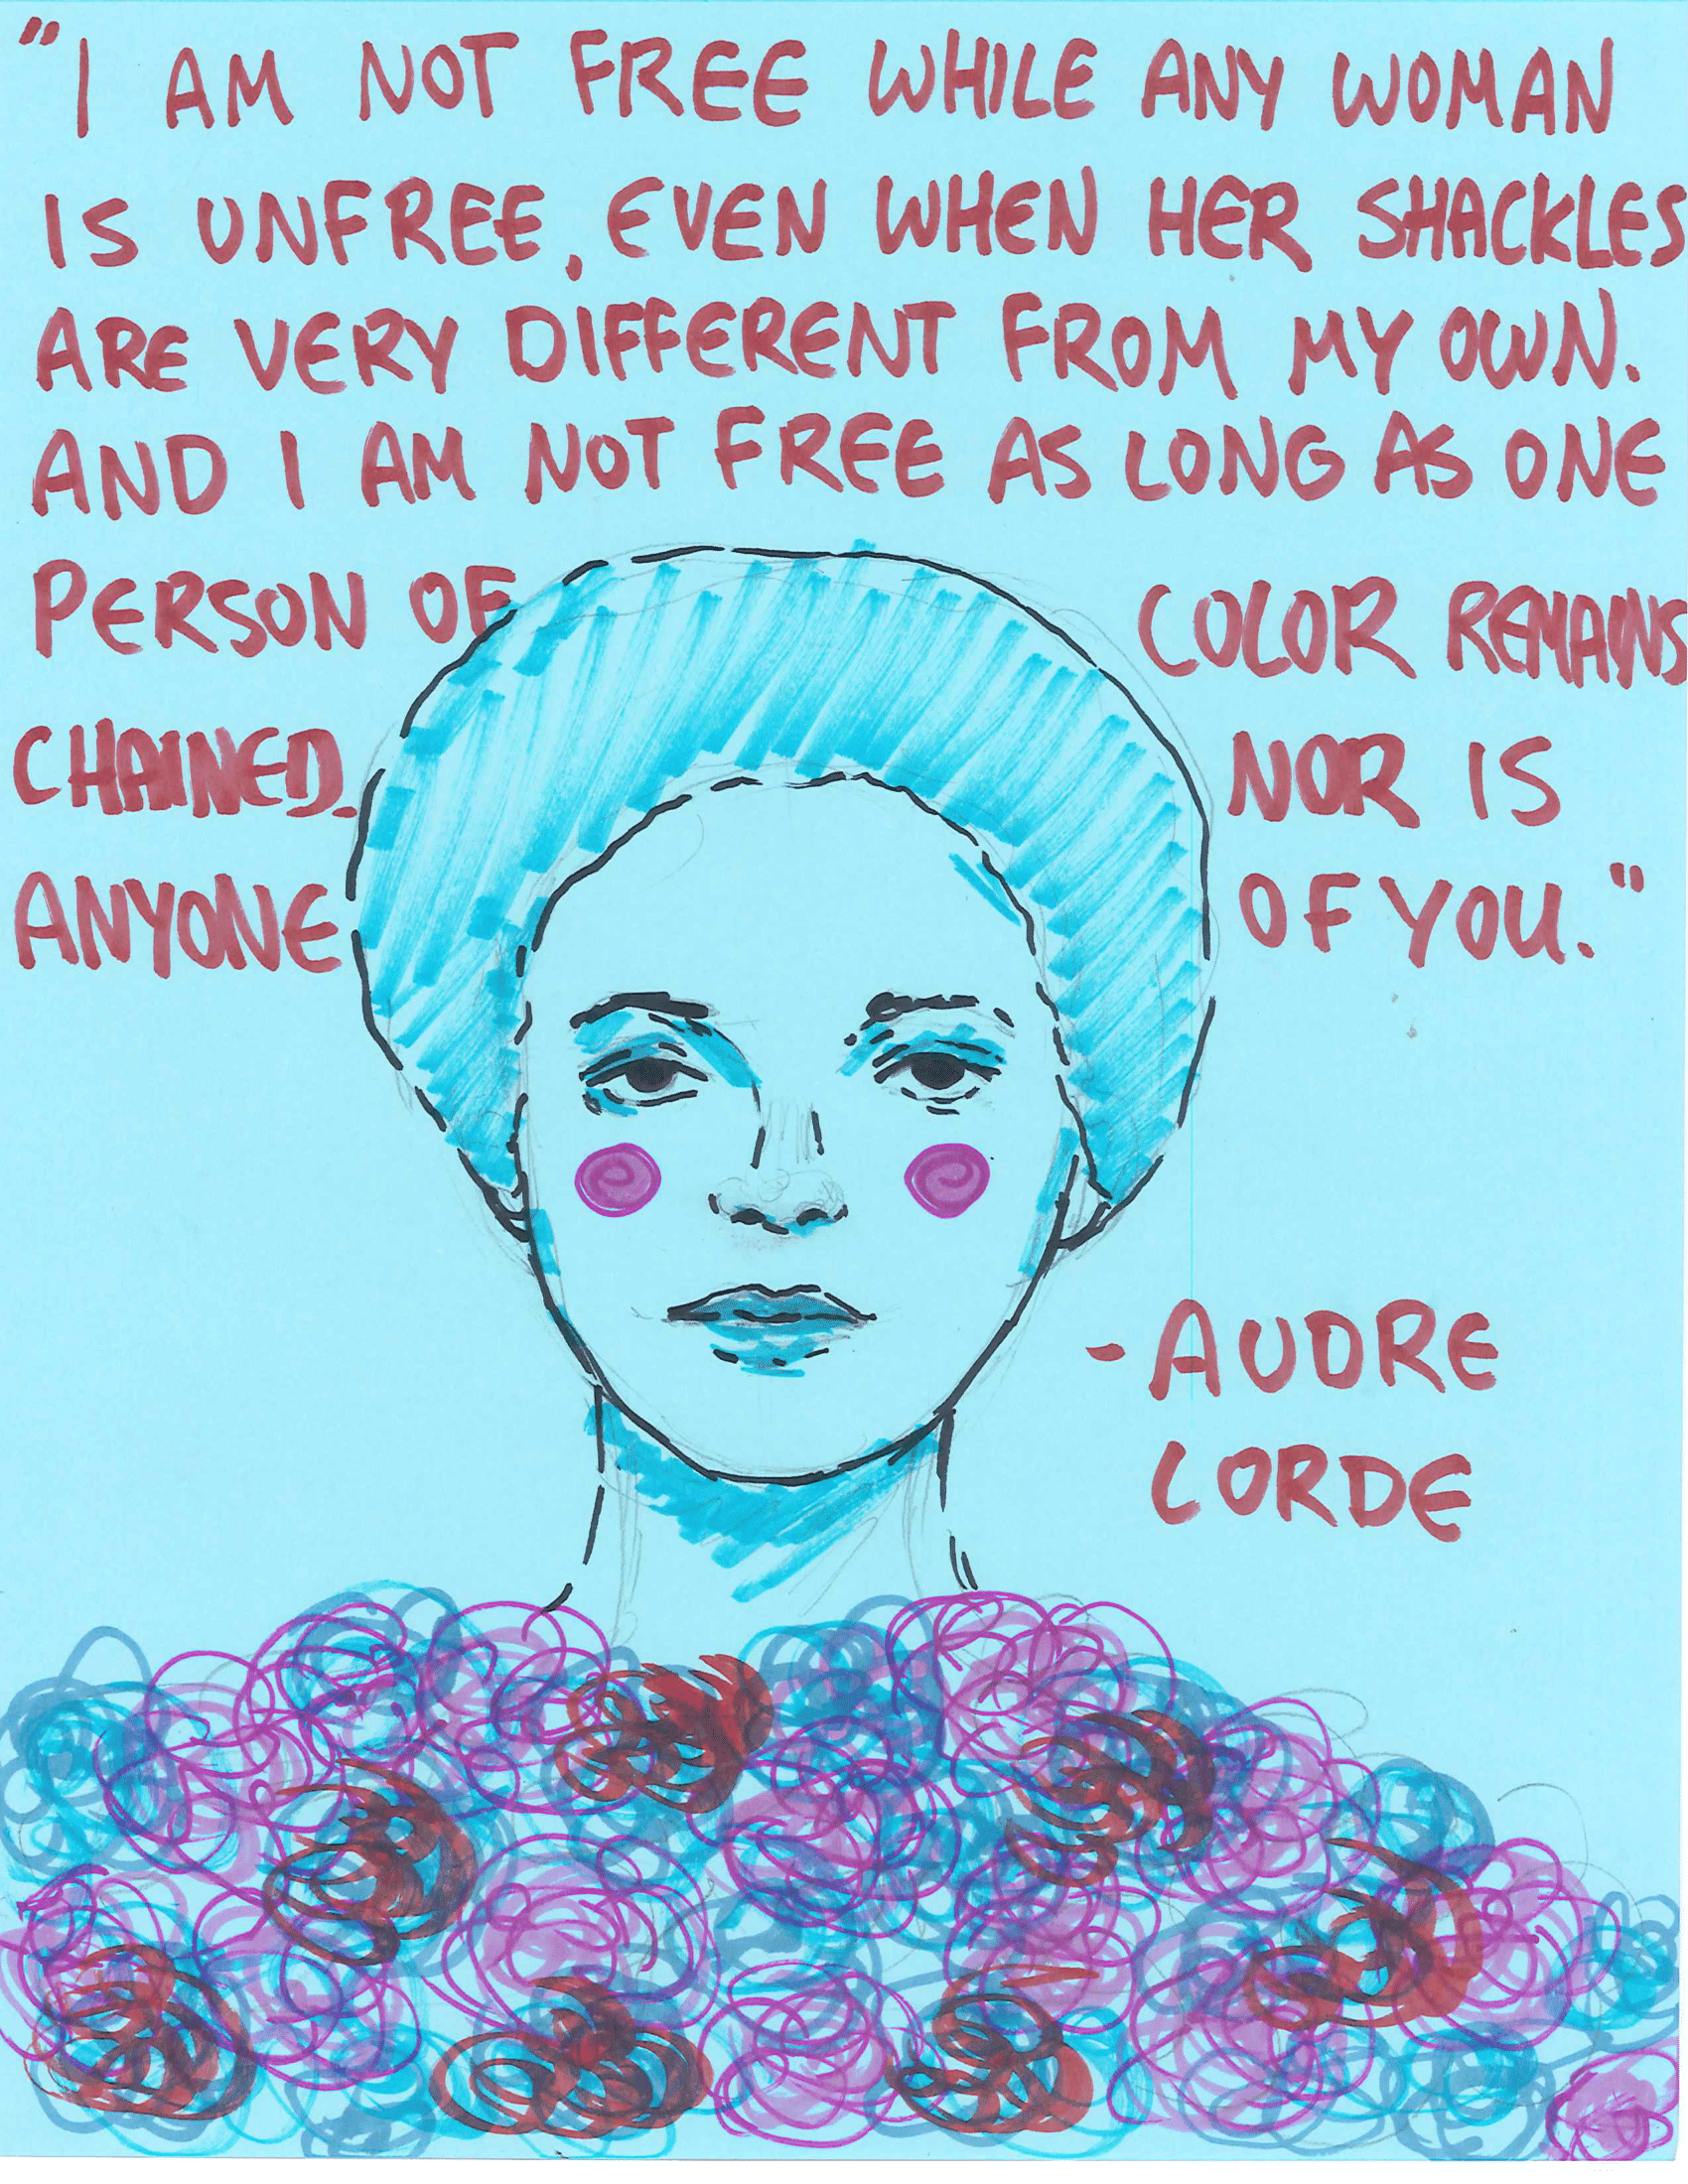 "I AM NOT FREE WHILE ANY WOMAN
IS UNFREE, EVEN WHEN HER SHACKLES
ARE VERY DIFFERENT FROM MY OWN.
AND I AM NOT FREE AS LONG AS ONE
PERSON OF COLOR REMAINS
CHAINED. NOR IS
ANYONE OF YOU."
-AUDRE
LORDE